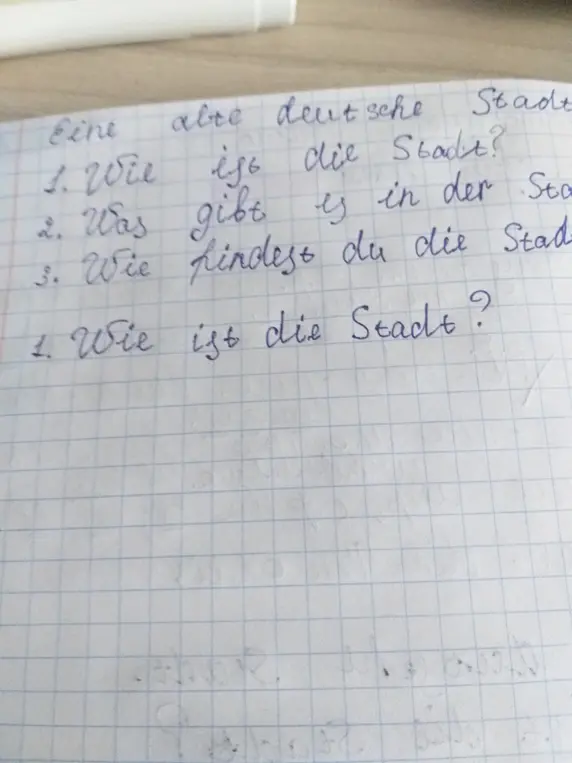 Eine alte deutsche Stadt
1. Wie ist die Stadt?
2. Was gibt es in der Sta
3. Wie findest du die Stad
1. Wie ist die Stadt?